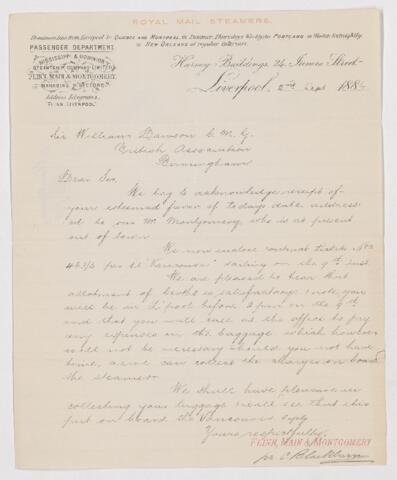 ROYAL MAIL STEAMERS.
QUEBEC AND MONTREAL in Summer, Thursdays Weekly, to PORTLAND in Winter Fortnightly,
to NEW ORLEANS at regular intervals.
PASSENGER DEPARTMENT.
MISSISSIPPI & DOMINION
STEAMSHIP COMPANY LIMITED
FLINN, MAIN & MONTGOMERY,
MANAGING DIRECTORS.
Address Telegrams,
"FLINN LIVERPOOL"
Harvey Buildings, 24, James Street
Liverpool, 2nd Sept 188
Sir William Dawson C.M.G.
British Association
Birmingham
Dear Sir,
We beg to acknowledge receipt of
your esteemed favor of to-days date address-
ed to our Mr. Montgomery, who is at present
out of town.
We now enclose contract ticket No
per SS "Vancouver" sailing on the 9th inst.
We are pleased to hear that
allotment of berths is satisfactory. I note you
will be in L'pool before 2 pm on the 9th
and that you will call at the office to pay
any expenses on the baggage which however
will not be necessary should you not have
time, as we can collect the charges on board
the steamer.
We shall have pleasure in
collecting your luggage & will see that it is
put on board the Vancouver
Yours respectfully,
FLINN, MAIN & MONTGOMERY
per C Blackburn